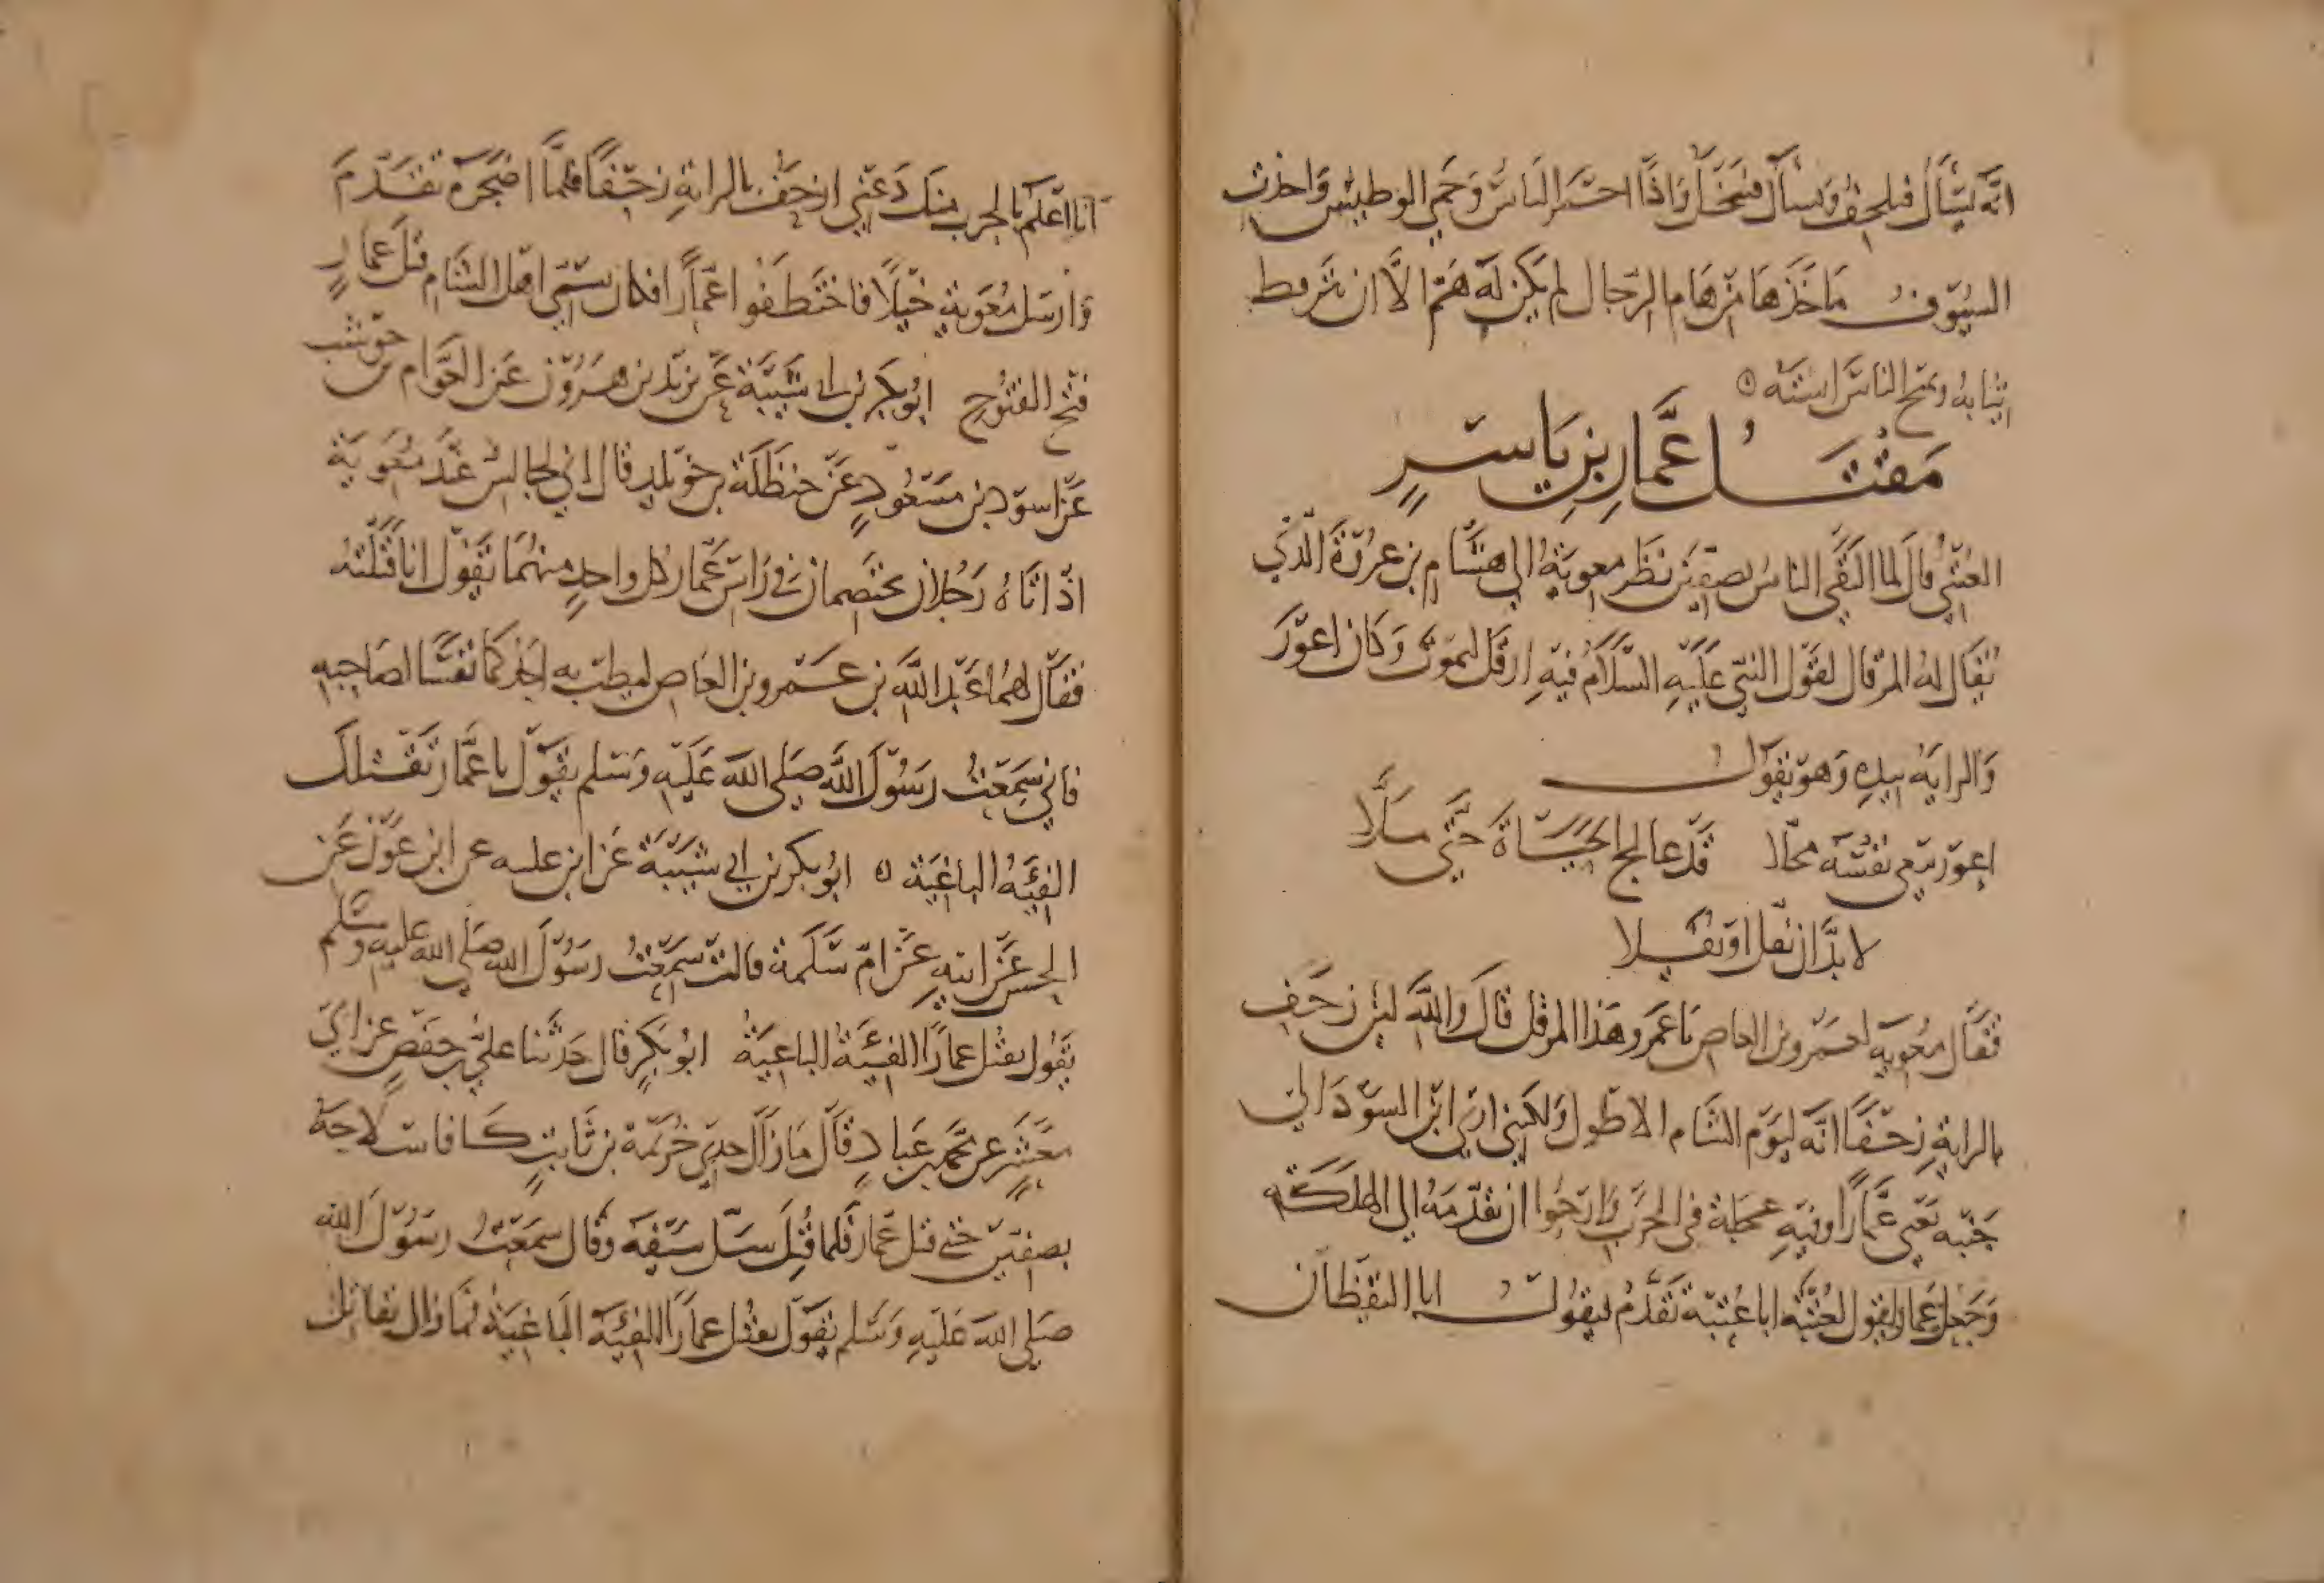 انه يسأل فيلحف ويسأل فيبخل واذا احمر الباس وحمي الوطيس واخذت
السيوف مأخذها من هام الرجال لم يكن له هم الا ان
ثيابه ويمنح الناس استه
مقتل عمار بن ياسر
العتبي قال لما التقى الناس بصفين نظر معوية الى هشام بن عروة الذي
يقال له المرقال لقول النبي عليه السلام فيه ارقل ليموت وكان اعور
والراية بيده وهو يقول
اعور يبغي نفسه محلا قد عالج الحياة حتى ملا
لا بد ان يفل او يفلا
فقال معوية لعمرو بن العاص يا عمرو هذا المرقل قال والله لئن زحف
بالراية زحفا انه ليوم الشام الاطول ولكني ارى ابن السودا الى
جنبه يعني عمارا وفيه عجلة في الحرب وارجوا ان تقدمه الى الهلكة
وجعل عمار يقول لعتبة ابا عتبة تقدم فيقول ابا اليقظان
انا اعلم بالحرب منك دعني ازحف بالراية زحفا فلما اضجره تقدم
وارسل معوية خيلا فاختطفوا عمارا فكان يسمي اهل الشام قتل عمار
فتح الفتوح ابو بكر بن ابي شيبة عن يزيد بن هرون عن العوام بن حوشب
عن اسود بن مسعود عن حنظلة بن خويلد قال اني لجالس عند معوية
اذ اتاه رجلان يختصمان في راس عمار كل واحد منهما يقول انا قتلته
فقال لهما عبد الله بن عمرو بن العاص ليطب به احدكما نفسا لصاحبه
فاني سمعت رسول الله صلى الله عليه وسلم يقول يا عمار تقتلك
الفئة الباغية ابو بكر بن ابي شيبة عن ابن عليه عن ابن عون عن
الحسن عن امه عن ام سلمة قالت سمعت رسول الله صلى الله عليه وسلم
يقول تقتل عمارا الفئة الباغية ابو بكر قال حدثنا علي بن حفص عن ابي
معشر عن محمد بن عباد قال ما زال جدي خزيمة بن ثابت كافا سلاحه
بصفين حتى قتل عمار فلما قتل سل سيفه وقال سمعت رسول الله
صلى الله عليه وسلم يقول تقتل عمارا الفئة الباغية فما زال يقاتل